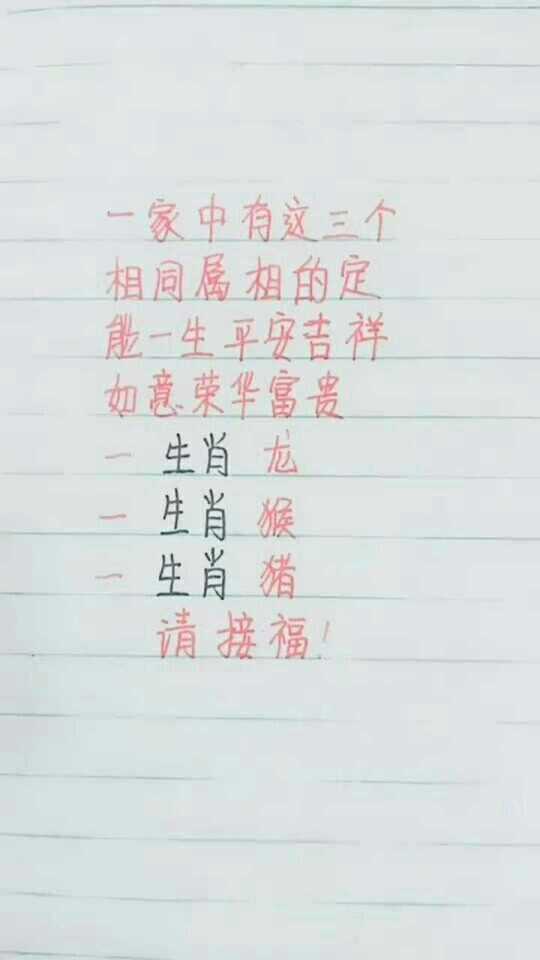 一家中有这三个
相同属相的定
能一生平安吉祥
如意荣华富贵
一 生肖 龙
一 生肖 猴
一 生肖 猪
请接福!